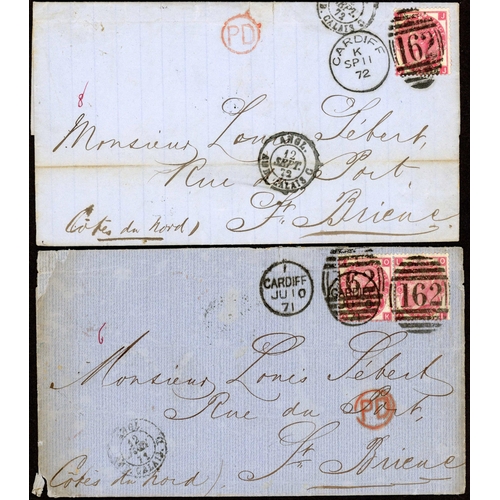 PD
CARDIFF
K
SP 11
72
162
8
ANGL.
12
SEPT.
72
AMB. CALAIS C
Monsieur Louis Sébert,
Rue du Port,
St. Brieuc
(Côtes du Nord)
1
CARDIFF
JU 10
71
162
162
6
Monsieur Louis Sébert
Rue du Port,
PD
St. Brieuc
(Côtes du Nord)
ANGL.
12
71
CALAIS